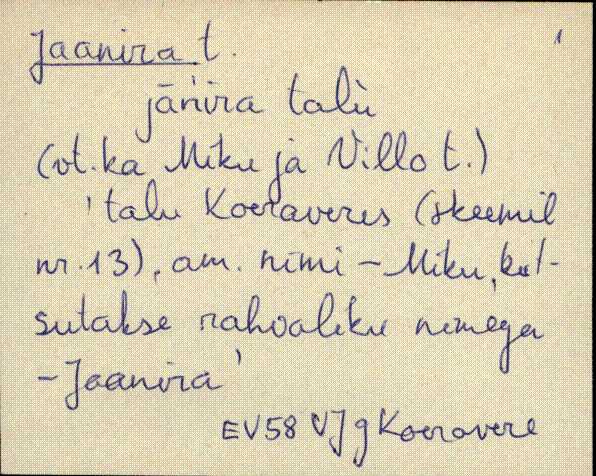 Jaanira t. 1
jāńira talù
(vt. ka Miku ja Villo t.)
'talu Koeraveres (skeemil
nr. 13), am. nimi – Miku, kut-
sutakse rahvaliku nimega
– Jaanira'
EV58 VJg Koeravere